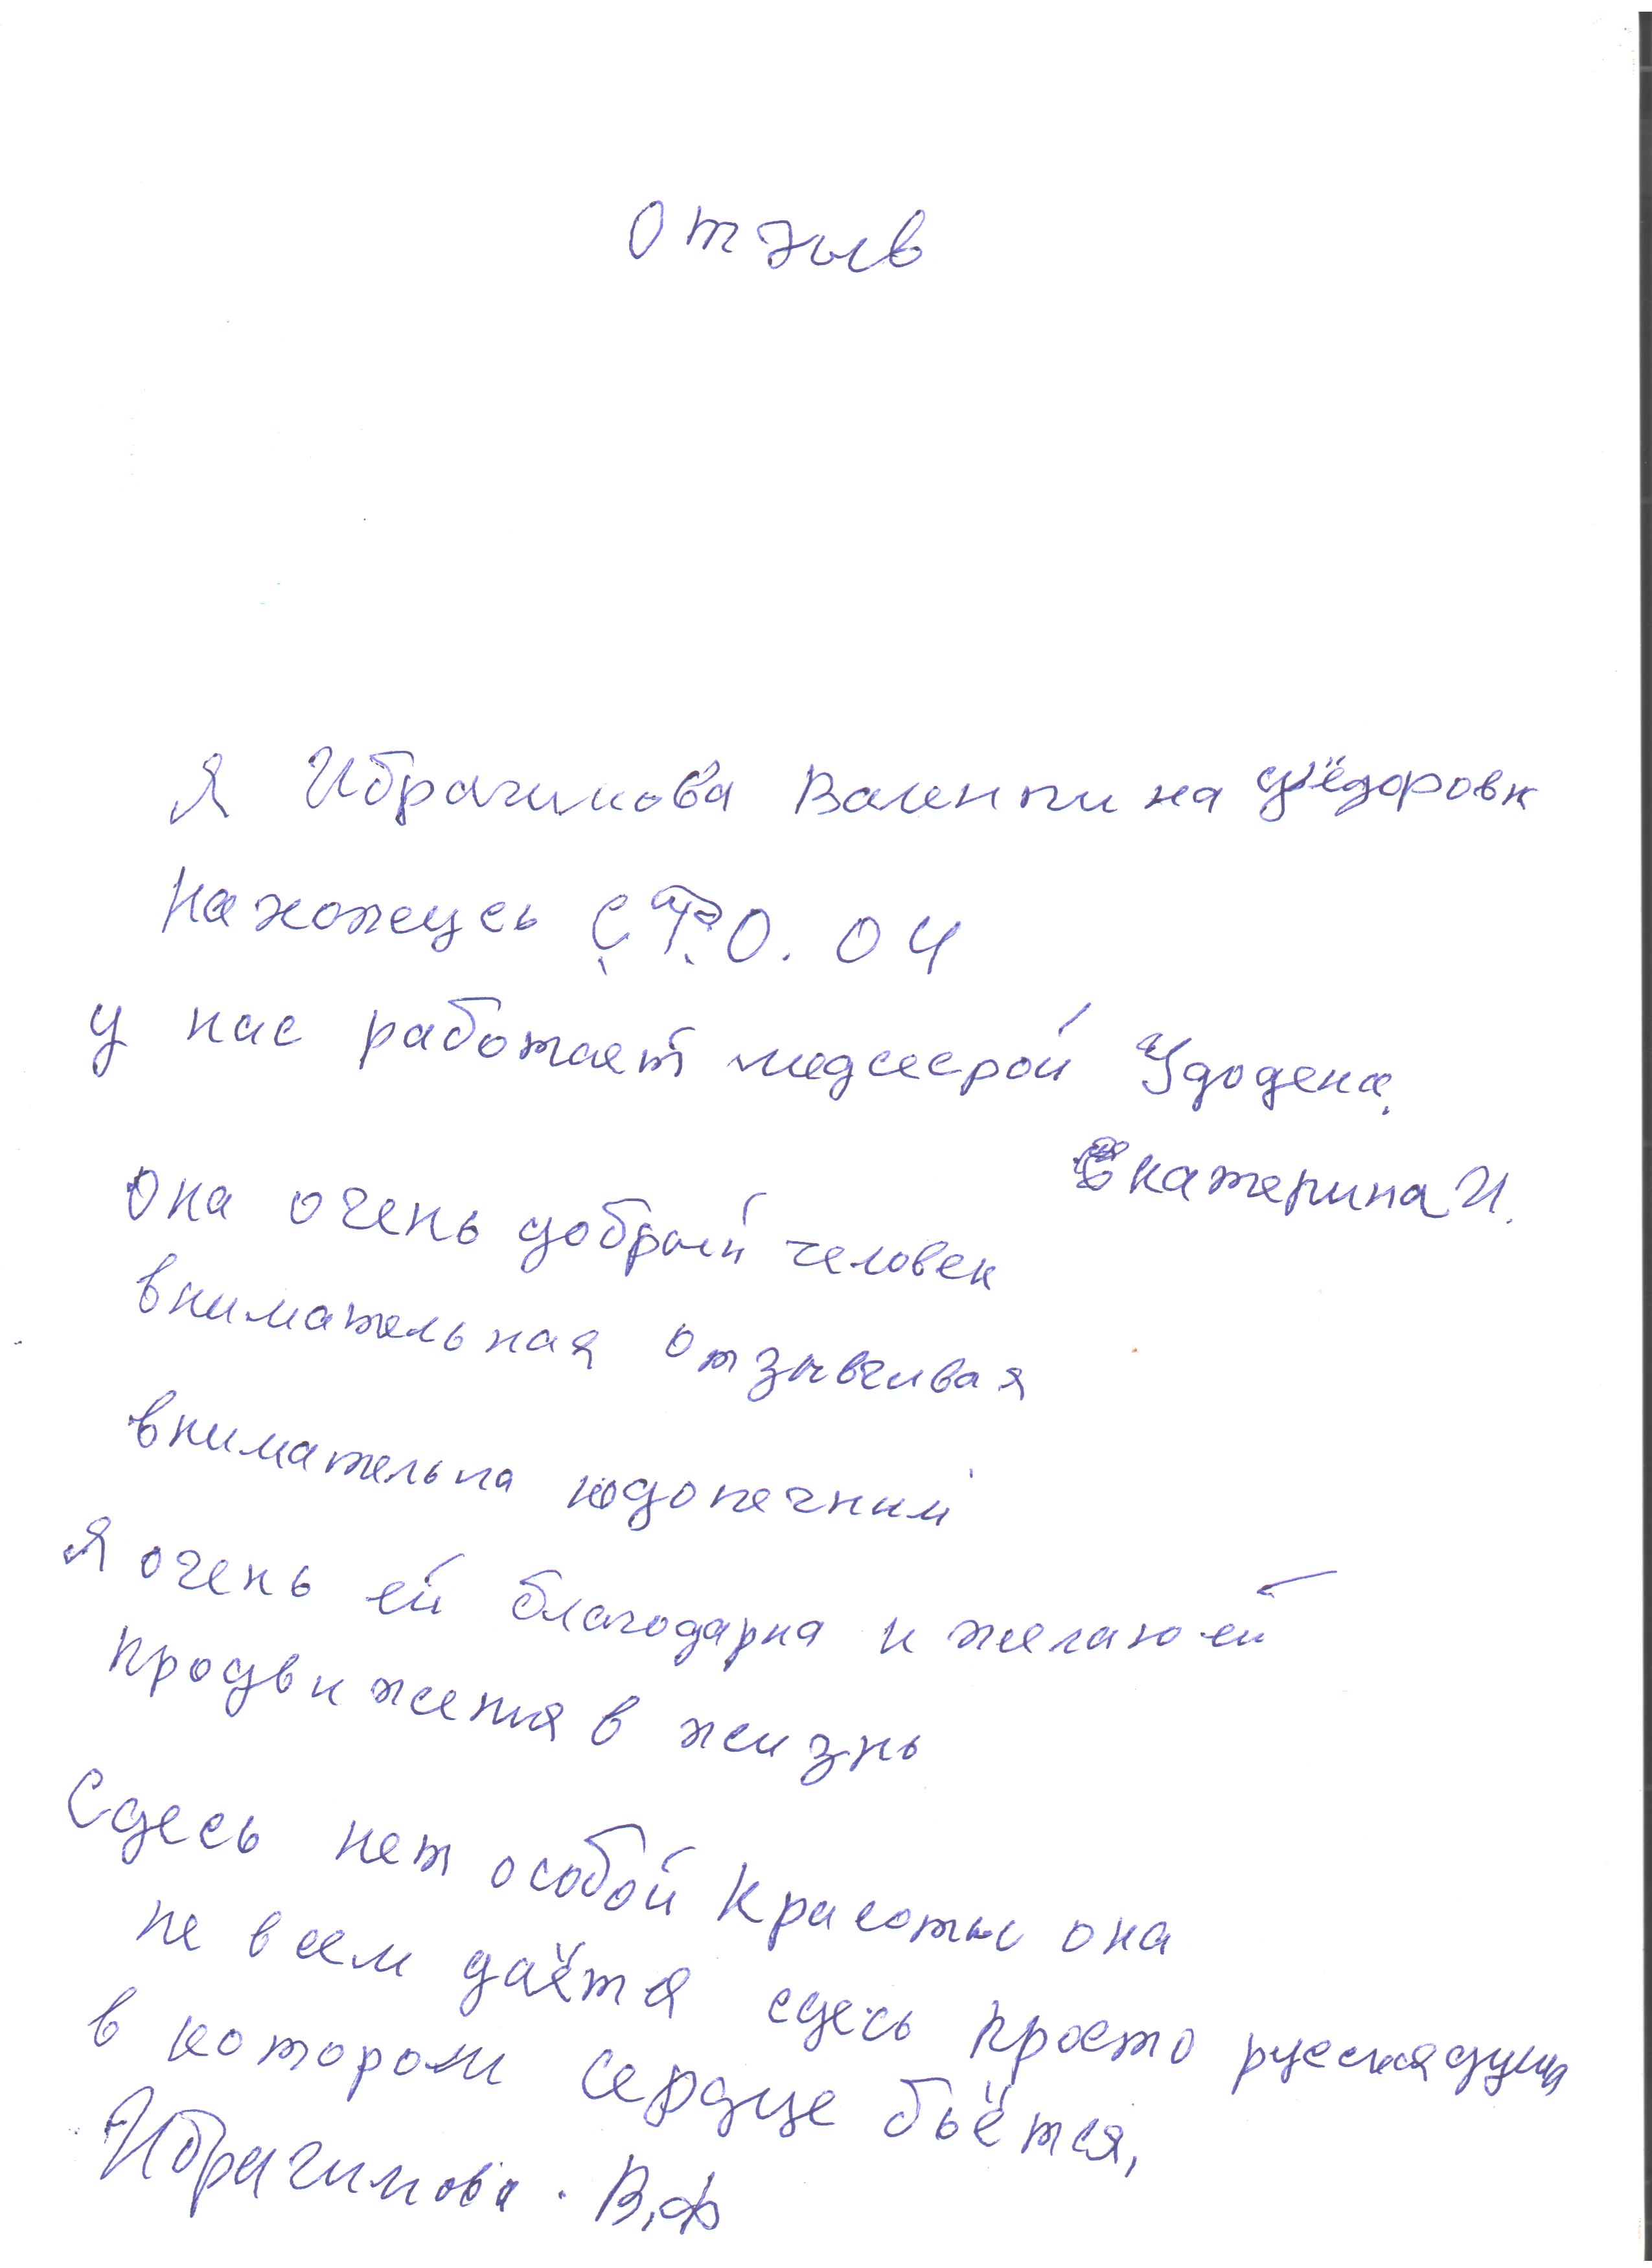 Отзыв
Я Ибрагимова Валентина Фёдоровн
Нахожусь С.Т.О. 04
у нас работает медсесрой Удодена.
Екатерина И.
Она очень добрый человек
внимательная отзывчивая
внимательна подопечным
Я очень ей благодарна и желаю ей
продвижения в жизнь
Сдесь нет особой красоты она
не всем даётся сдесь просто русская душа
в котором сердце бьётся,
Ибрагимова. В,Ф